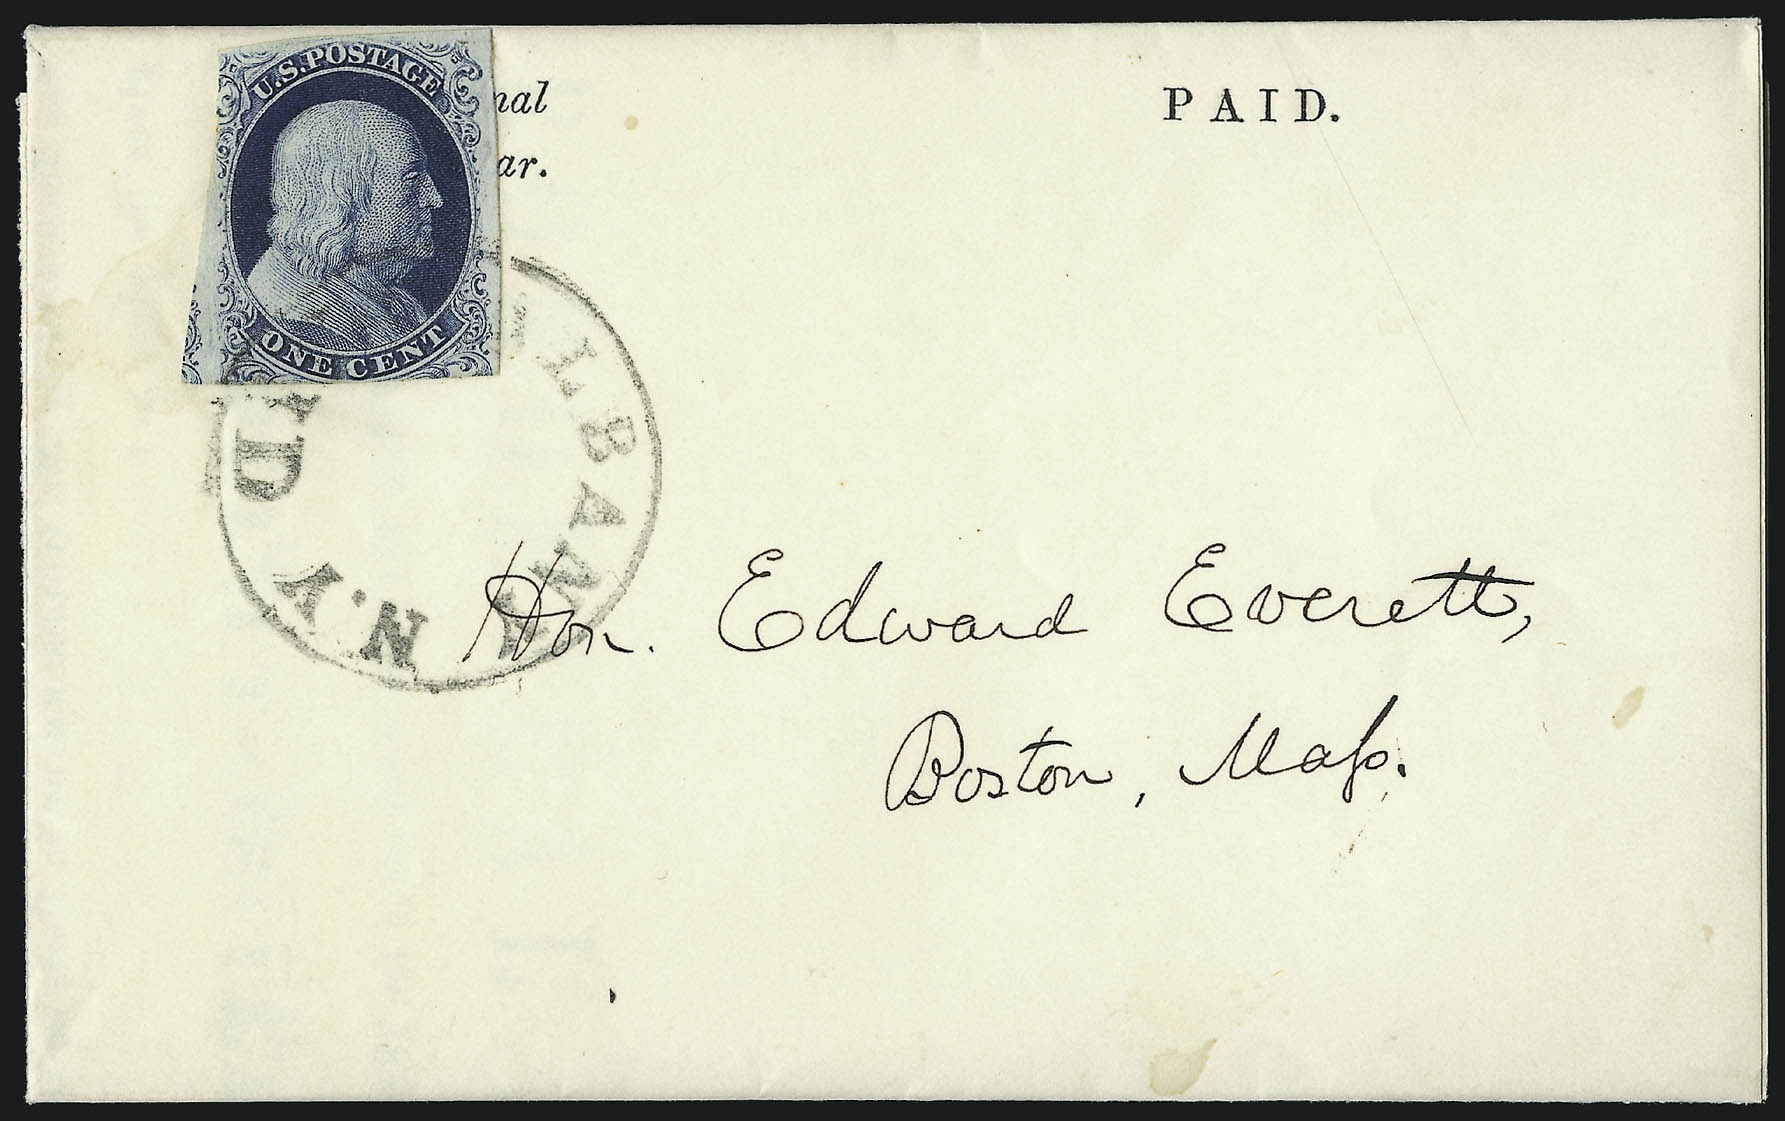 U.S. POSTAGE
ONE CENT
nal
ar.
PAID.
ALBANY N.Y.
Hon. Edward Everett,
Boston, Mass.